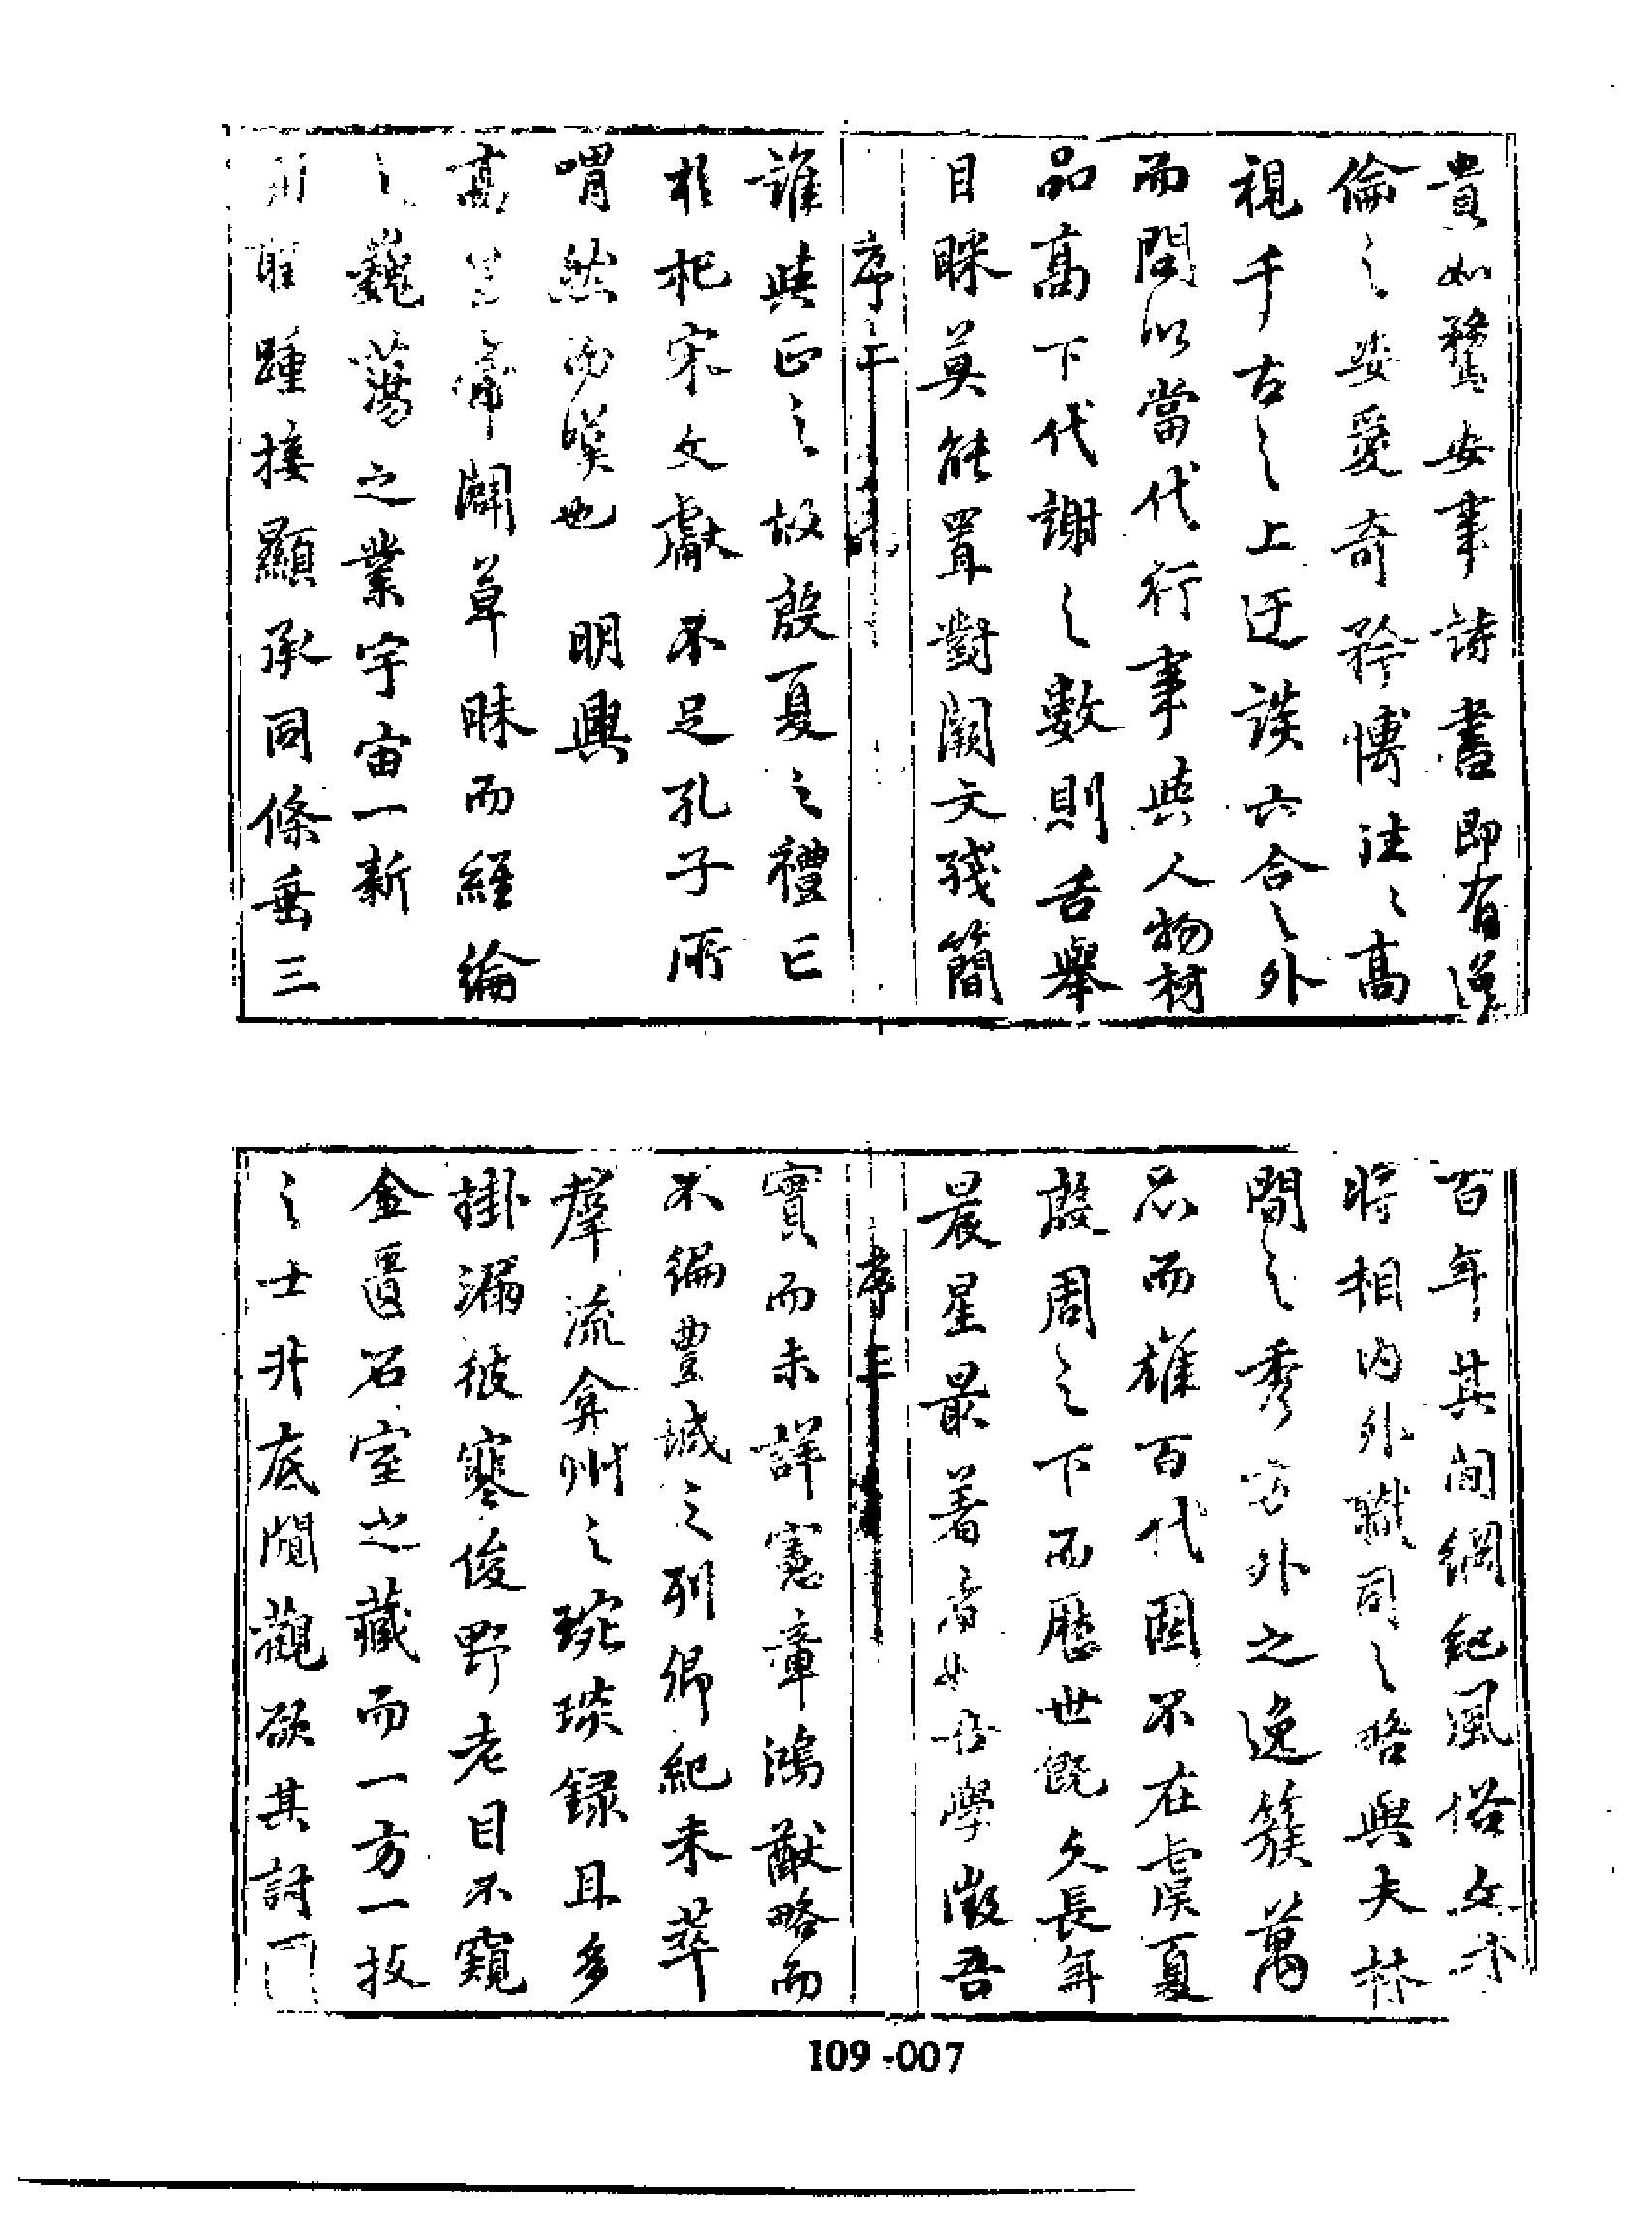 貴如騖安事詩書即有逞
倫之姿愛奇矜博注〻高
視千古之上迂談六合之外
而問以當代行事與人物材
品高下代謝之數則舌舉
目眯莫能置對闕文殘簡
序
誰與正之故殷夏之禮已
於杞宋文獻不足孔子所
喟然而嘆也 明興
高 帝闢草昧而經綸
之巍蕩之業宇宙一新
踵接顯承同條垂三
百年其間綱紀風俗文才
將相內外職司之略與夫林
間之秀方外之逸簇萬
品而雄百代固不在虞夏
殷周之下而歷世既久長年
晨星最著 學澂吾
序三
實而未詳憲章鴻猷略而
不編豐城之列卿紀未萃
羣流弇州之琬琰録且多
掛漏彼寒俊野老目不窺
金匱石室之藏而一方一技
之士非底閒觀欲其討
109-007